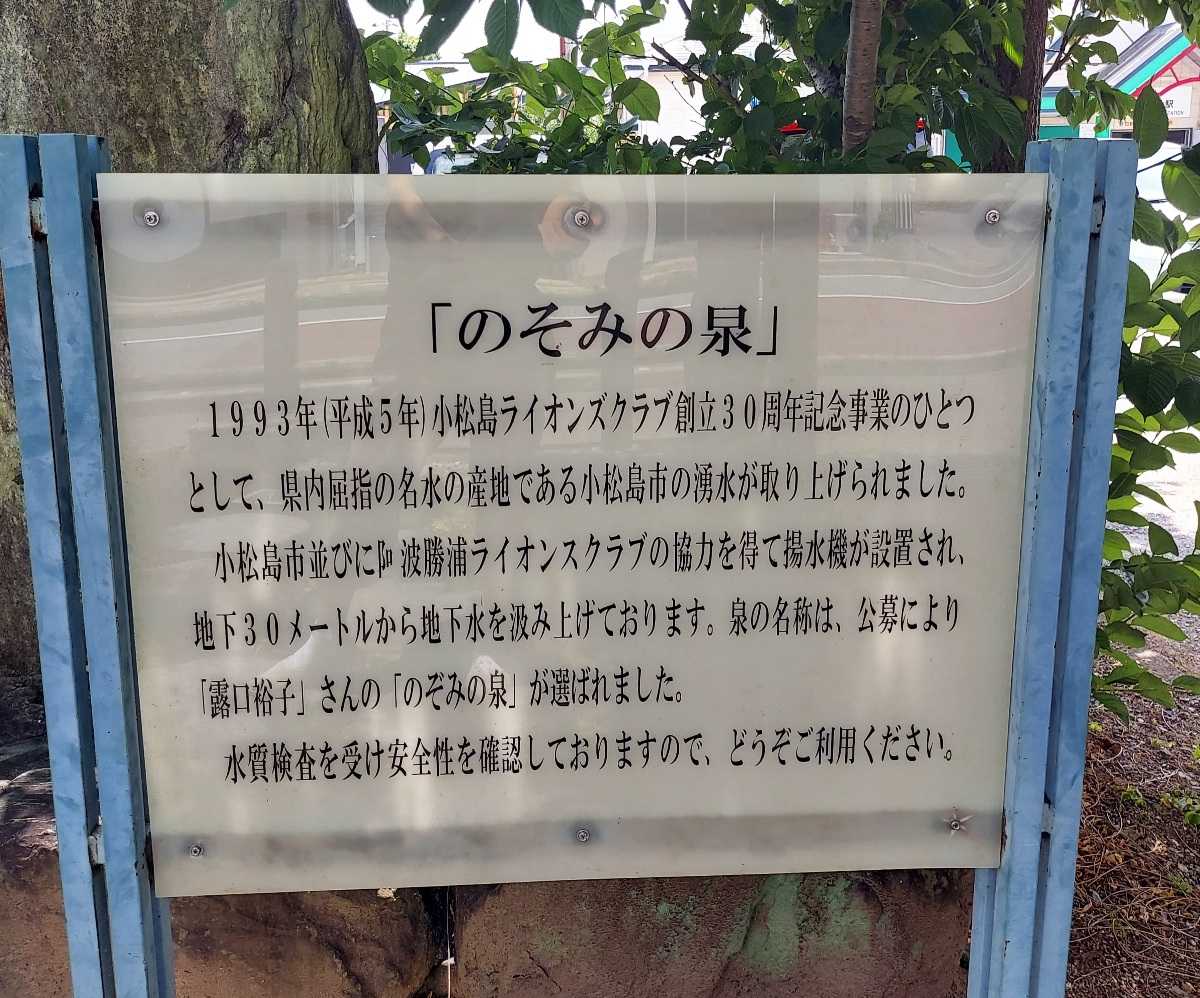 「のそみの泉」
1993年(平成5年)小松島ライオンズクラブ創立30周年記念事業のひとつ
として、県内屈指の名水の産地である小松島市の湧水が取り上げられました。
小松島市並びに阿波勝浦ライオンスクラブの協力を得て揚水機が設置され、
地下30メートルから地下水を汲み上げております。泉の名称は、公募により
「露口裕子」さんの「のぞみの泉」が選ばれました。
水質検査を受け安全性を確認しておりますので、どうぞご利用ください。
駅